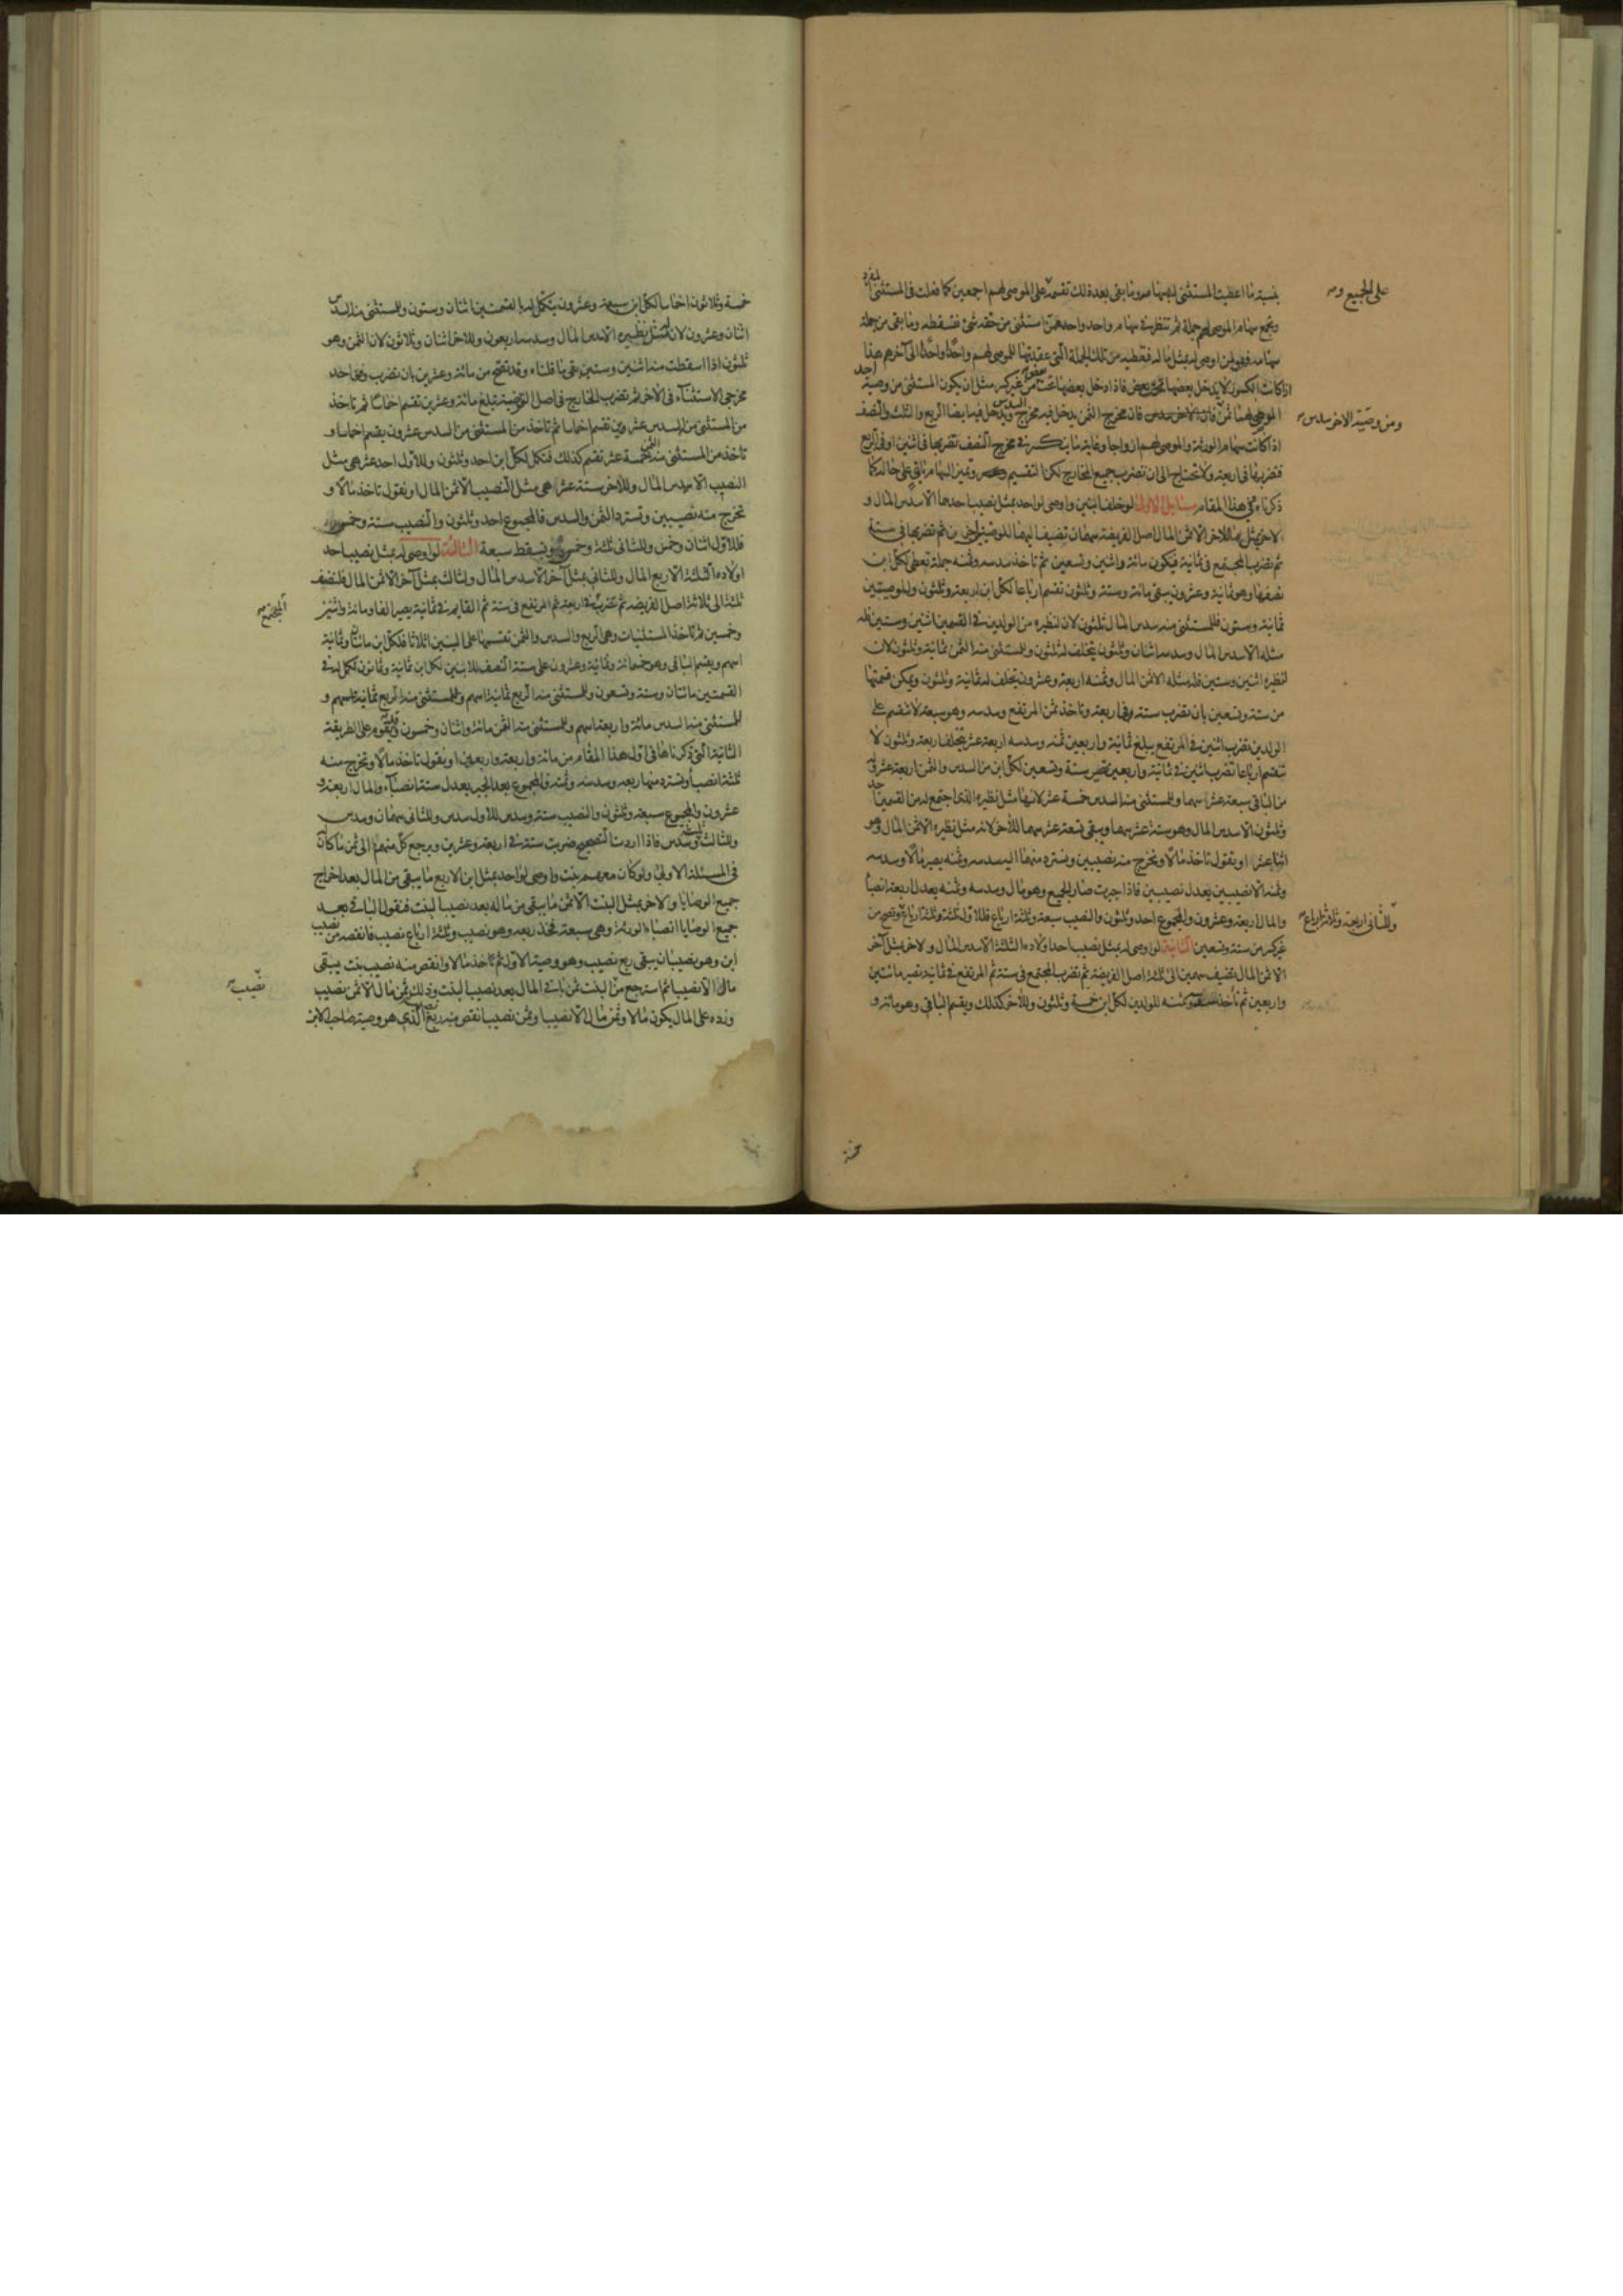 بنسبة ما اعطيت المستثنى لهم سهامه وما بقى بعد ذلك تقسمه على الموصى لهم اجمعين كما فعلت فى المستثنى
وتجمع سهام الموصى لهم جملة ثم تنظر فى سهام واحد واحد ممن استثنى من حقه شئ فتسقطه وما بقى من جملة
سهامه فهو لمن اوصى له بمثل ماله فتعطيه من تلك الجملة التى عقدتها للموصى لهم واحدا واحدا الى آخرهم هذا
اذا كانت الكسور لا يدخل بعضها تحت بعض فاذا دخل بعضها تحت بعض من غير كسر مثل ان يكون المستثنى من وصية احد
الموصى لهما ثمن ومن وصية الاخر سدس فان مخرج الثمن يدخل فيه مخرج ويدخل فيها ايضا الربع والثلث والنصف
اذا كانت سهام الورثة والموصى لهم ازواجا وغاية ما ينكسر فى مخرج النصف تضربها فى اثنين او فى الربع
فتضربها فى اربعة ولا تحتاج الى ان تضرب جميع المخارج لكن التقسيم وتميز السهام باقى على حاله كما
ذكرناه وفى هذا المقام مسايل الاولى لو خلف ابنين واوصى لواحد بمثل نصيب احدهما الا سدس المال و
لاخر بمثل ما للاخر الا ثمن المال اصل الفريضة سهمان تضيف اليهما للوصيتين اخرين ثم تضربها فى ستة
ثم تضرب المجتمع فى ثمانية فيكون مائة واثنين وتسعين ثم تاخذ سدسه وثمنه جملة تعطى لكل ابن
نصفها وهو ثمانية وعشرون يبقى مائة وستة وثلثون تقسم ارباعا لكل ابن اربعة وثلثون وللموصيتين
ثمانية وستون فللمستثنى منه سدس المال ثلثون لان لنظيره من الولدين فى القسمين اثنين وستين فله
مثله الا سدس المال وسدسه اثنان وثلثون يتخلف ثلثون وللمستثنى منه الثمن ثمانية وثلثون لان
لنظيره اثنين وستين فله مثله الا ثمن المال وثمنه اربعة وعشرون يتخلف له ثمانية وثلثون ويمكن قسمتها
من ستة وتسعين بان تضرب ستة فى اربعة وتاخذ ثمن المرتفع وسدسه وهو سبعة لا تنقسم على
الولدين تضرب اثنين فى المرتفع يبلغ ثمانية واربعين ثمنه وسدسه اربعة عشر يتخلف اربعة وثلثون لا
تنقسم ارباعا تضرب اثنين فى ثمانية واربعين تصير ستة وتسعين لكل ابن من السدس والثمن اربعة عشر وفى
من الباقى سبعة عشر سهما وللمستثنى منه السدس خمسة عشر لانها مثل نظيره الذى اجتمع له من القسمين احد
وثلثون الا سدس المال وهو ستة عشر سهما ويبقى تسعة عشر سهما للاخر لانه مثل نظيره الا ثمن المال وهو
اثنا عشر او تقول تاخذ مالا وتخرج منه نصيبين وتسترد منهما اليه سدسه وثمنه يصير مالا وسدسه
وثمنه الا نصيبين يعدل نصيبين فاذا جبرت صار الجميع وهو مال وسدسه وثمنه يعدل اربعة انصبا
والمال اربعة وعشرون والمجموع احد وثلثون والنصيب سبعة وثلثة ارباع فللاول ثلثة وثلثة ارباع وللثانى اربعة وثلاثة ارباع وتصح من
غير كسر من ستة وتسعين الثانية لو اوصى له بمثل نصيب احد اولاده الثلثة الا سدس المال ولاخر بمثل آخر
الا ثمن المال تضيف سهمين الى ثلثة اصل الفريضة ثم تضرب المجتمع فى ستة ثم المرتفع فى ثمانية تصير مائتين
واربعين ثم تأخذ سدسه وثمنه للولدين لكل ابن خمسة وثلثون وللآخر كذلك ويقسم الباقى وهو مائة و
على الجميع و
ومن وصية الاخر سدس
وللثانى اربعة وثلاثة ارباع
خمسة
خمسة وثلاثون اخماسا لكل ابن سبعة وعشرون يتكمل له بالقسمتين اثنان وستون وللمستثنى منه السدس
اثنان وعشرون لان له مثل نظيره الا سدس المال وسدسه اربعون وللاخر اثنان وثلاثون لان الثمن وهو
ثلثون اذا اسقطت من اثنين وستين بقى ما قلناه وقد تصح من مائة وعشرين بان تضرب وفق احد
مخرجى الاستثناء فى الآخر ثم تضرب الخارج فى اصل الفريضة تبلغ مائة وعشرين تقسم اخماسا ثم تاخذ
من المستثنى من السدس عشرين تقسم اخماسا ثم تاخذ من المستثنى من السدس عشرون يقسم اخماسا و
تاخذ من المستثنى منه الثمن خمسة عشر تقسم كذلك فتكمل لكل ابن احد وثلثون وللاول احد عشر هى مثل
النصيب الا سدس المال وللاخر ستة عشر هى مثل النصيب الا ثمن المال او نقول تاخذ مالا و
تخرج منه نصيبين وتسترد الثمن والسدس فالمجموع احد وثلثون والنصيب ستة وخمس
فللاول اثنان وخمس وللثانى ثلثة وخمس وتسقط سبعة الثالثة لو اوصى له بمثل نصيب احد
اولاده الثلثة الا ربع المال وللثانى بمثل آخر الا سدس المال ولثالث بمثل آخر الا ثمن المال فتضف
ثلثة الى ثلاثة اصل الفريضة ثم تضرب المجتمع فى اربعة ثم المرتفع فى ستة ثم القايم فى ثمانية يصير الفا ومائة واثنين
وخمسين ثم تاخذ المستثنيات وهى الربع والسدس والثمن تقسمها على البنين اثلاثا فلكل ابن مائتان وثمانية
اسهم ويقسم الباقى وهو خمسمائة وثمانية وعشرون على ستة النصف للابنين لكل ابن ثمانية وثمانون تكمل له فى
القسمتين مائتان وستة وتسعون وللمستثنى منه الربع ثمانية اسهم و
للمستثنى منه السدس مائة واربعة اسهم وللمستثنى منه الثمن مائة واثنان وخمسون ويقوم على الطريقة
الثانية التى ذكرناها فى اول هذا المقام من مائة واربعة واربعين او نقول تاخذ مالا وتخرج منه
ثلثة انصباء وتسترد منها ربعه وسدسه وثمنه والمجموع بعد الجبر يعدل ستة انصباء والمال اربعة و
عشرون والمجموع سبعة وثلثون والنصيب ستة وسدس للاول سدس وللثانى سهمان وسدس
وللثالث ثلثة وسدس فاذا اردت التصحيح ضربت ستة فى اربعة وعشرين ويرجع كل منهم الى ثمن ما كان
فى المسئلة الاولى ولو كان معهم بنت واوصى لواحد بمثل ابن الا ربع ما يبقى من المال بعد اخراج
جميع الوصايا ولاخر بمثل البنت الا ثمن ما يبقى من ماله بعد نصيب البنت فنقول الباقى بعد
جميع الوصايا انصباء الورثة وهى سبعة فخذ ربعه وهو نصيب وثلثة ارباع نصيب فانقصه من نصيب
ابن وهو نصيبان يبقى ربع نصيب وهو وصية الاول ثم تاخذ مالا وانقص منه نصيب بنت يبقى
مال الا نصيبا ثم استرجع من البنت ثمن باقى المال بعد نصيب البنت وذلك ثمن مال الا ثمن نصيب
وزده على المال يكون مالا وثمن مال الا نصيبا وثمن نصيب انقص منه ربع نصيب الذى هو وصية صاحب الابن
المجتمع
نصيب